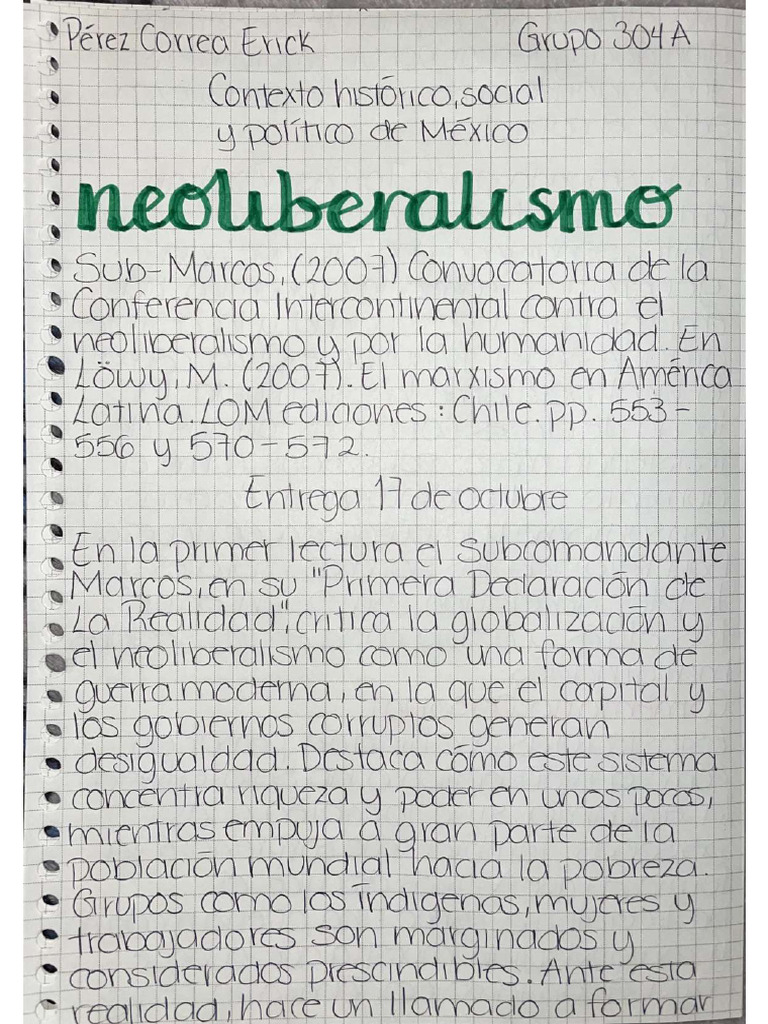 Pérez Correa Erick Grupo 304A
Contexto histórico, social
y político de México
neoliberalismo
Sub-Marcos, (2007) Convocatoria de la
Conferencia Intercontinental contra el
neoliberalismo y por la humanidad. En
Löwy, M. (2007). El marxismo en América
Latina. LOM ediciones: Chile. pp. 553-
556 y 570-572.
Entrega 17 de octubre
En la primer lectura el Subcomandante
Marcos, en su "Primera Declaración de
La Realidad", critica la globalización y
el neoliberalismo como una forma de
guerra moderna, en la que el capital y
los gobiernos corruptos generan
desigualdad. Destaca cómo este sistema
concentra riqueza y poder en unos pocos,
mientras empuja a gran parte de la
población mundial hacia la pobreza.
Grupos como los indígenas, mujeres y
trabajadores son marginados y
considerados prescindibles. Ante esta
realidad, hace un llamado a formar